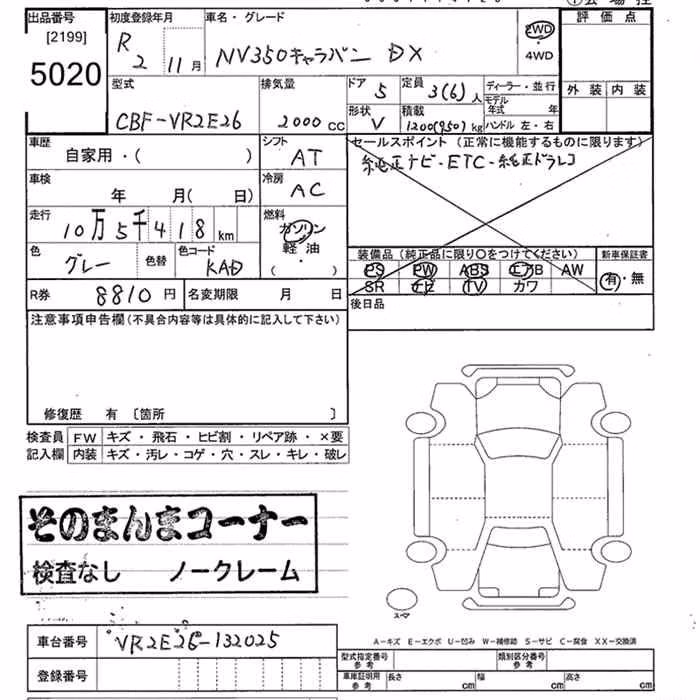 出品番号
[2199]
5020
初度登録年月
R 2 11月
車名・グレード
NV350キャラバン DX
2WD
・
4WD
評価点
外装 内装
型式
CBF-VR2E26
排気量
2000 CC
ドア 5
定員 3(6)人
ディーラー・並行
モデル年式 年
形状 V
積載 1200(950)kg
ハンドル 左・右
車歴
自家用・( )
シフト AT
セールスポイント(正常に機能するものに限ります)
純正ナビ・ETC・純正ドラレコ
車検
年 月( 日)
冷房 AC
走行
10万5千418km
燃料
ガソリン
・
軽油
・
( )
色
グレー
色替
色コード
KAD
装備品(純正品に限り○をつけてください)
新車保証書
PS PW ABS エアB AW
SR ナビ TV カワ
有・無
R券 8810円
名変期限 月 日
後日品
注意事項申告欄(不具合内容等は具体的に記入して下さい)
修復歴 有〔箇所 〕
検査員記入欄
FW キズ・飛石・ヒビ割・リペア跡・×要
内装 キズ・汚レ・コゲ・穴・スレ・キレ・破レ
そのまんまコーナー
検査なし ノークレーム
スペア
A-キズ E-エクボ U-凹み W-補修跡 S-サビ C-腐食 XX-交換済
車台番号 VR2E26-132025
登録番号
型式指定番号参考
類別区分番号参考
車庫証明用参考 長さ cm 幅 cm 高さ cm